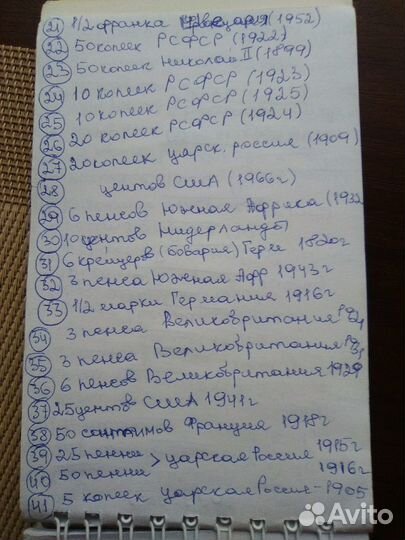 21 1/2 франка Швецария (1952)
22 50 копеек РСФСР (1922)
23 50 копеек Николай II (1899)
24 10 копеек РСФСР (1923)
25 10 копеек РСФСР (1925)
26 20 копеек РСФСР (1924)
27 20 копеек царск. россия (1909)
28 центов США (1966г)
29 6 пенсов Южная Африка (1932
30 10 центов Нидерланды
31 6 крейцеров (бовария) Герм 1820г
32 3 пенса Южная Афр 1943г
33 1/2 марки Германия 1916г
34 3 пенса Великобритания
35 3 пенса Великобритания
36 6 пенсов Великобритания 1929
37 25 центов США 1941г
38 50 сантимов Франция 1918г
39 25 пенни > царская Россия 1915г
40 50 пенни 1916г
41 5 копеек царская Россия - 1905
Avito